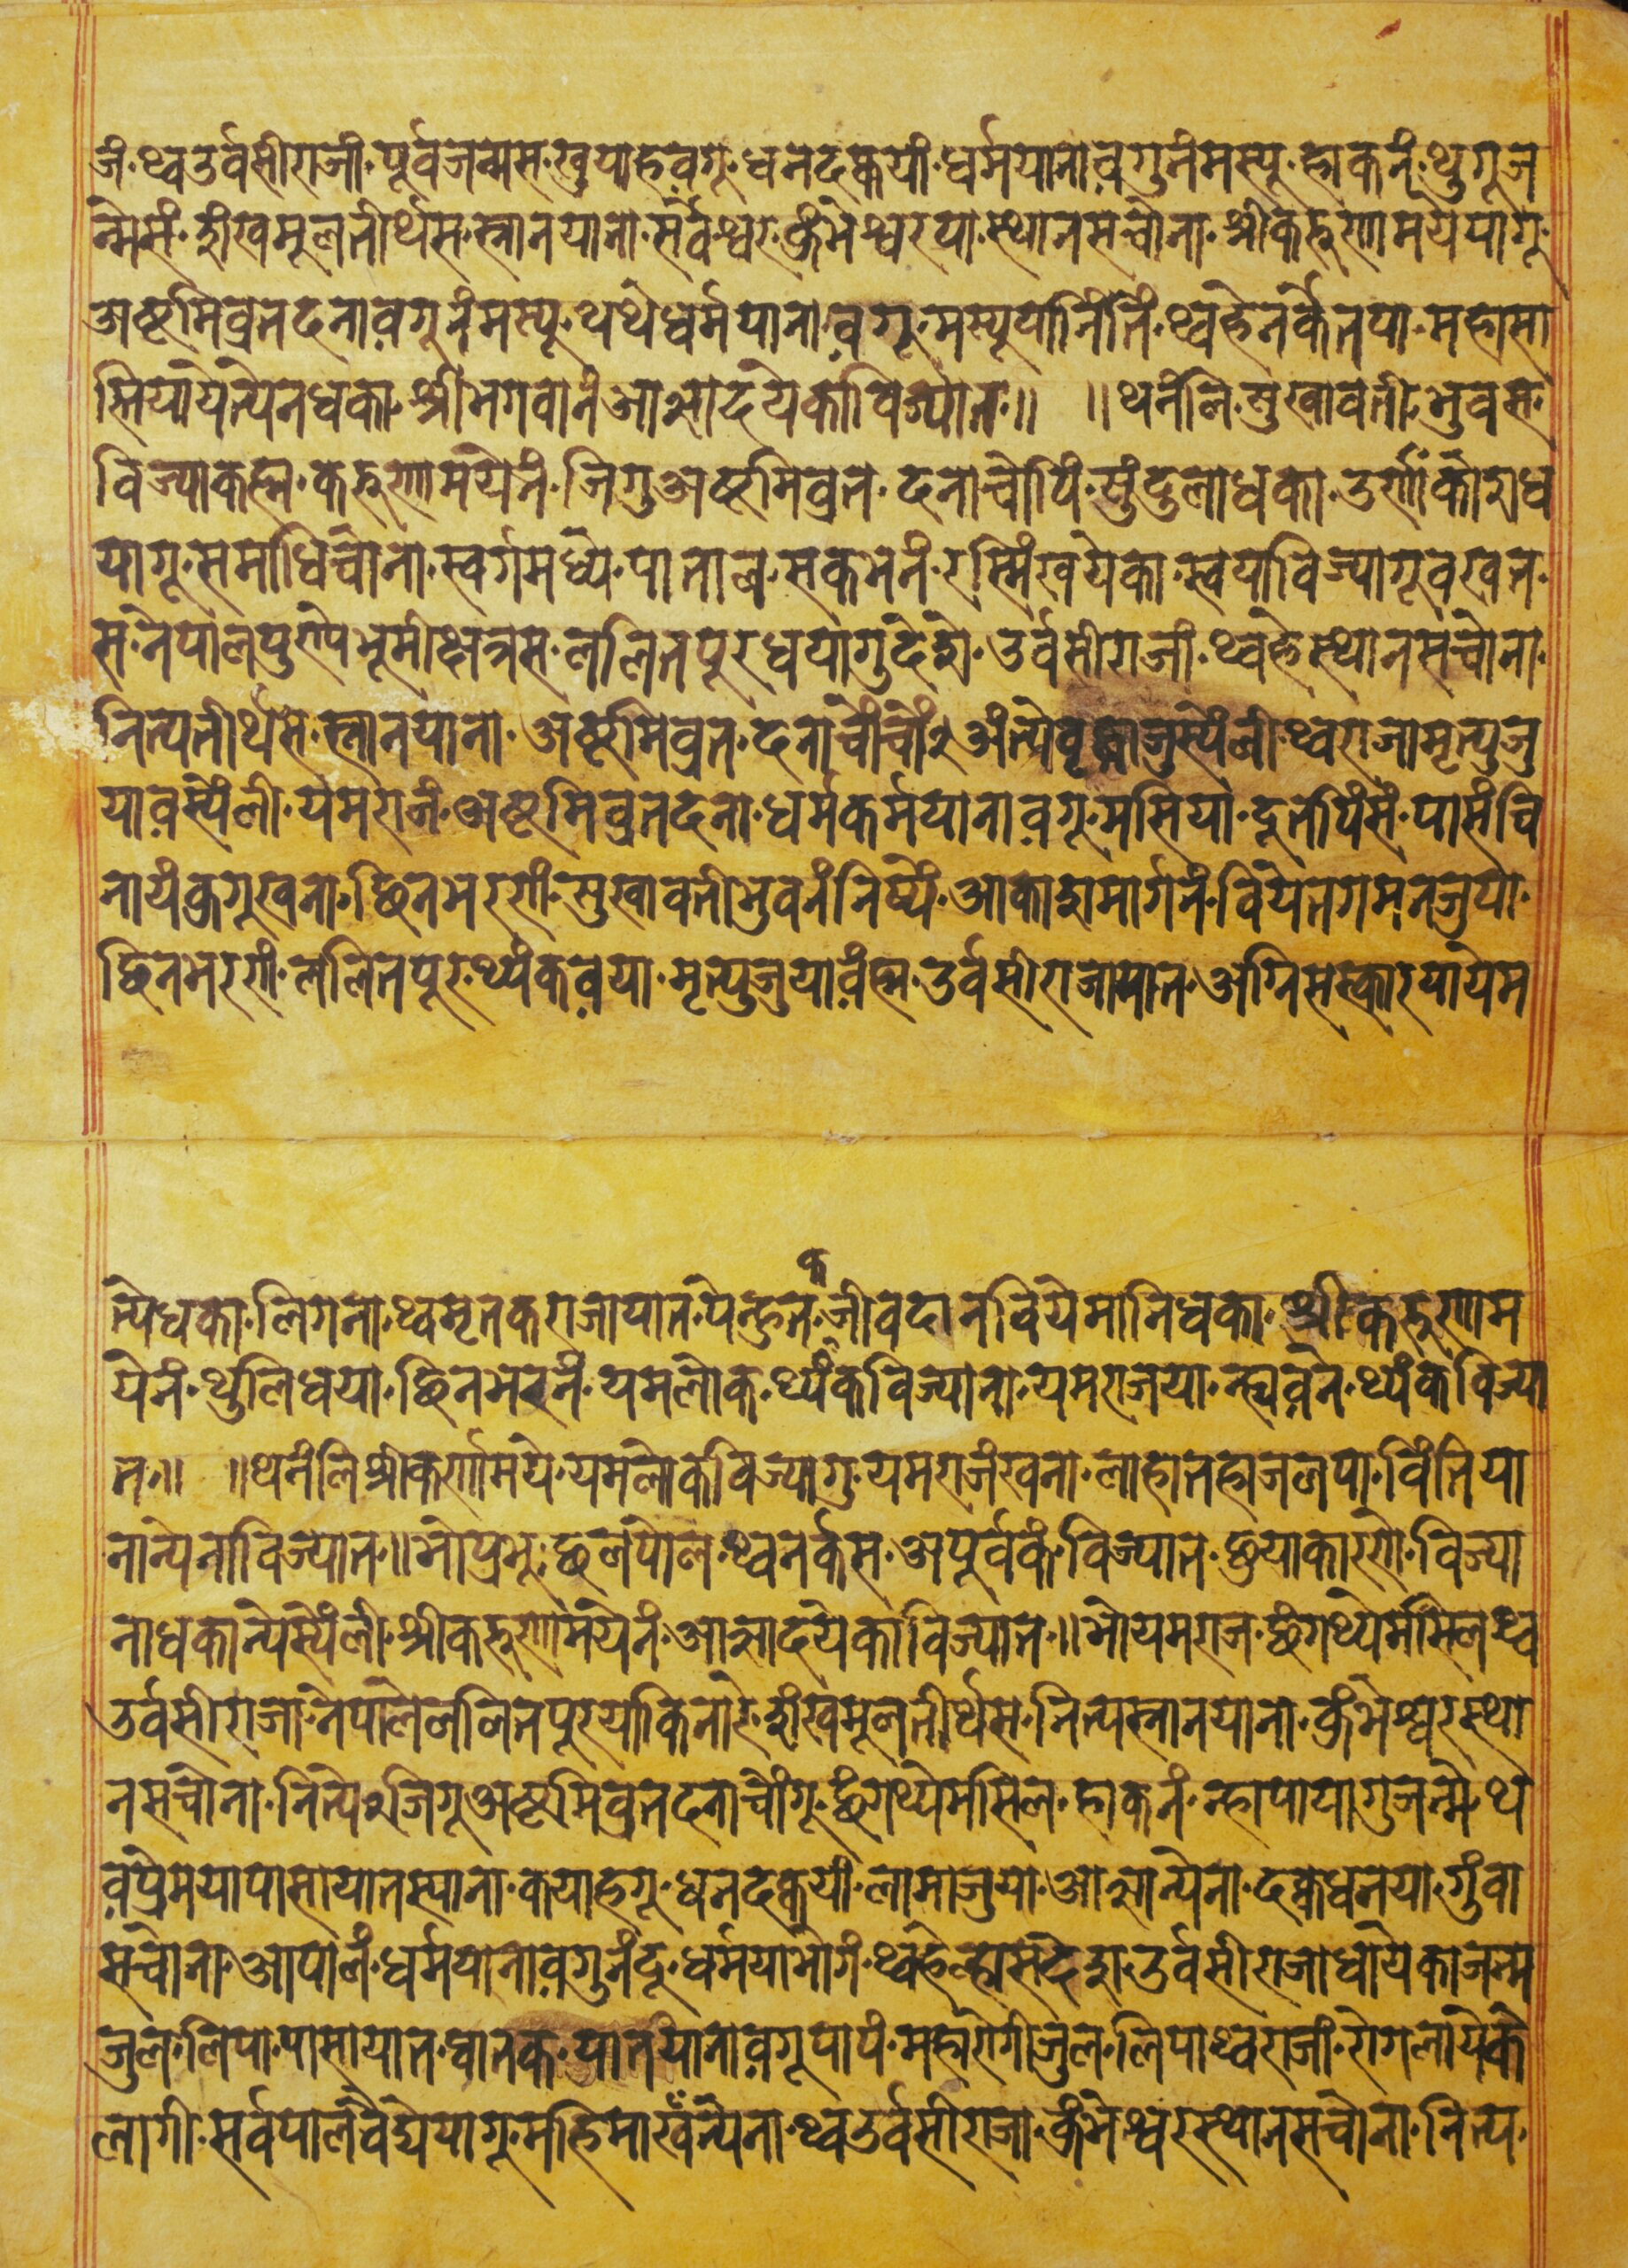 जं·थ्वउर्वसीराजां·पूर्वजन्मस·खुयाहवगू·धनदक्वयां·धर्मयानावगुनंमस्यू·हाकनं·थुगूज
न्मेसं·शंखमूलतीर्थस·स्नानयाना·सर्वेश्वर·क्रंभेश्वरया·स्थानसच्वोना·श्रीकरुणामयेयागू·
अष्टमिव्रतदनावगूनंमस्यू·थथेधर्मयाना·वगू·मस्यूयानिंतिनं·थ्वहेनर्केतया·महासा
स्तियायेत्येनधका·श्रीभगवानंआज्ञादयेकाविज्यात॥ ॥थनंलि·सुखावती·भुवस·
विज्याकह्म·करुणामयेनं·जिगुअष्टमिव्रत·दनाच्वोपिं·सुंदुलाधका·उर्णाकोशध
यागू·समाधिच्वोना·स्वर्गमध्ये·पाताल·सकभनं·रस्मिंखयेका·स्वयाविज्यागूवखत·
स·नेपालपुण्येभूमीक्षत्रस·ललितपूरधयागुदेशे·उर्वसीराजां·थ्वहेस्थानसच्वोना·
नित्यतीर्थसे·स्नानयाना·अष्टमिव्रत·दनाच्वोंच्वों२अंत्येवृद्धाजुस्येंली·थ्वराजामृत्युजु
यावस्येंली·यमराजं·अष्टमिव्रतदना·धर्मकर्मयानावगू·मसिया·दूतपिंसं·पासंचि
नायंक्रगूखना·छिनभरणां·सुखावतीभुवनंनिष्यें·आकाशमार्गनं·वियेतगमनजुया·
छिनभरणां·ललितपूर·थ्यंकवया·मृत्युजुयावंह्म·उर्वसीराजायात·अग्निसंस्कारयायेम
त्येधका·लिगना·थ्वमृतकराजायात·पेन्हुत(क)·जीवदानवियेमानिधका·श्रीकरुणाम
येनं·थुलिधया·छिनभरनं·यमलोक·थ्यंकविज्याना·यमराजया·न्ह्यवने·थ्यंकविज्या
त॥ ॥थनंलिश्रीकर्णामये·यमलोकेविज्यागु·यमराजंखना·लाहातह्वाजलपा·विंतिया
नान्येनाविज्यात॥भोप्रभू·छलपोल·थ्वनर्कस·अपूर्वकं·विज्यात·छुयाकारणे·विज्या
नाधकान्येस्येंली·श्रीकरुणामयेनं·आज्ञादयेकाविज्यात॥भोयमराज·छंगथ्येमसिल·थ्व
उर्वसीराजा·नेपालेललितपूरयाकिनारे·शंखमूलतीर्थसे·नित्यस्नानयाना·क्रंभेश्वरस्था
नसच्वोना·नित्ये२जिगूअष्टमिव्रतदनाच्वोंगू·छंगथ्येमसिल·हाकनं·न्हापायागुजन्मे·थ
वप्रेमयापासायातस्याना·कयाहगू·धनदक्वयां·लामाजुया·आज्ञान्येना·दक्वधनया·गुंवा
सच्वोना·आपालं·धर्मयानावगुनंदू·धर्मयाभोगं·थ्वहेल्हासदेश·उर्वसीराजाधायेकाजन्म
जुल·लिपा·पासायात·घातक·यातयानावगूपापं·महारोगीजुल·लिपाथ्वराजां·रोगलायेके
लागी·सर्वपालवैद्येयागू·महिमाखँन्येना·थ्वउर्वसीराजा·क्रंभेश्वरस्थानसच्वोना·नित्य·